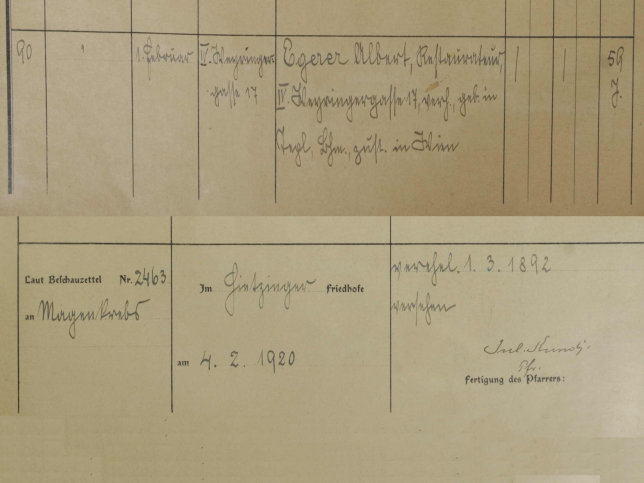 90 " 1. Februar IV. Weyringer- Egerer Albert, Restaurateur, | | 59
gasse 17 IV. Weyringergasse 17, verh., geb. in J.
Tepl, Bhm., zust. in Wien
Laut Beschauzettel Nr. 2463
an Magenkrebs
Im Hietzinger Friedhofe
am 4. 2. 1920
verehel. 1. 3. 1892
versehen
Pfr.
Fertigung des Pfarrers: